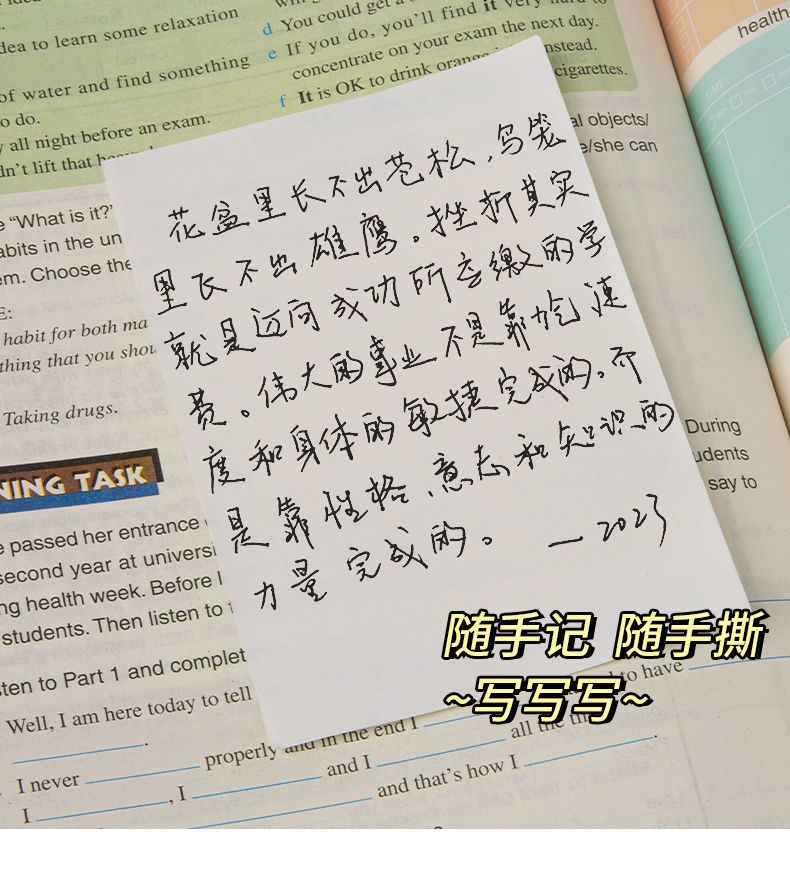 dea to learn some relaxation
of water and find something
o do.
all night before an exam.
dn't lift that
d You could get a
e If you do, you'll find it very hard to
concentrate on your exam the next day.
f It is OK to drink orange instead.
cigarettes.
health
TIME:
al objects/
e/she can
e "What is it?"
abits in the un
em. Choose the
E:
habit for both ma
thing that you shou
Taking drugs.
NING TASK
花盆里长不出苍松，鸟笼
里长不出雄鹰。挫折其实
就是迈向成功所应缴的学
费。伟大的事业不是靠吃速
度和身体的敏捷完成的。而
是靠性格、意志和知识的
力量完成的。 — 2023
During
udents
say to
e passed her entrance
second year at universi
ng health week. Before l
students. Then listen to
sten to Part 1 and complet
随手记 随手撕
~写写写~
Well, I am here today to tell
to have
properly and in the end I
all the
I never
, I
and I
I
and that's how I